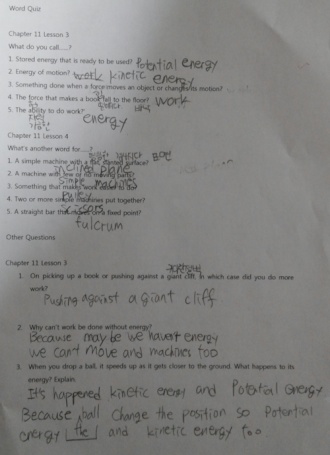 Word Quiz
Chapter 11 Lesson 3
What do you call.....?
1. Stored energy that is ready to be used? Potential energy
2. Energy of motion? work kinetic energy
3. Something done when a force moves an object or changes its motion?
4. The force that makes a book fall to the floor? work
5. The ability to do work? energy
Chapter 11 Lesson 4
What's another word for.....?
1. A simple machine with a flat slanted surface?
inclined plane
2. A machine with few or no moving parts?
simple machines
3. Something that makes work easier to do?
Pulley
4. Two or more simple machines put together?
scissors
5. A straight bar that moves on a fixed point?
fulcrum
Other Questions
Chapter 11 Lesson 3
1. On picking up a book or pushing against a giant cliff, in which case did you do more
work?
Pushing against a giant cliff
2. Why can't work be done without energy?
Because may be we haven't energy
we can't move and machines too
3. When you drop a ball, it speeds up as it gets closer to the ground. What happens to its
energy? Explain.
It's happened kinetic energy and Potential energy.
Because ball change the position so Potential
energy the and kinetic energy too.